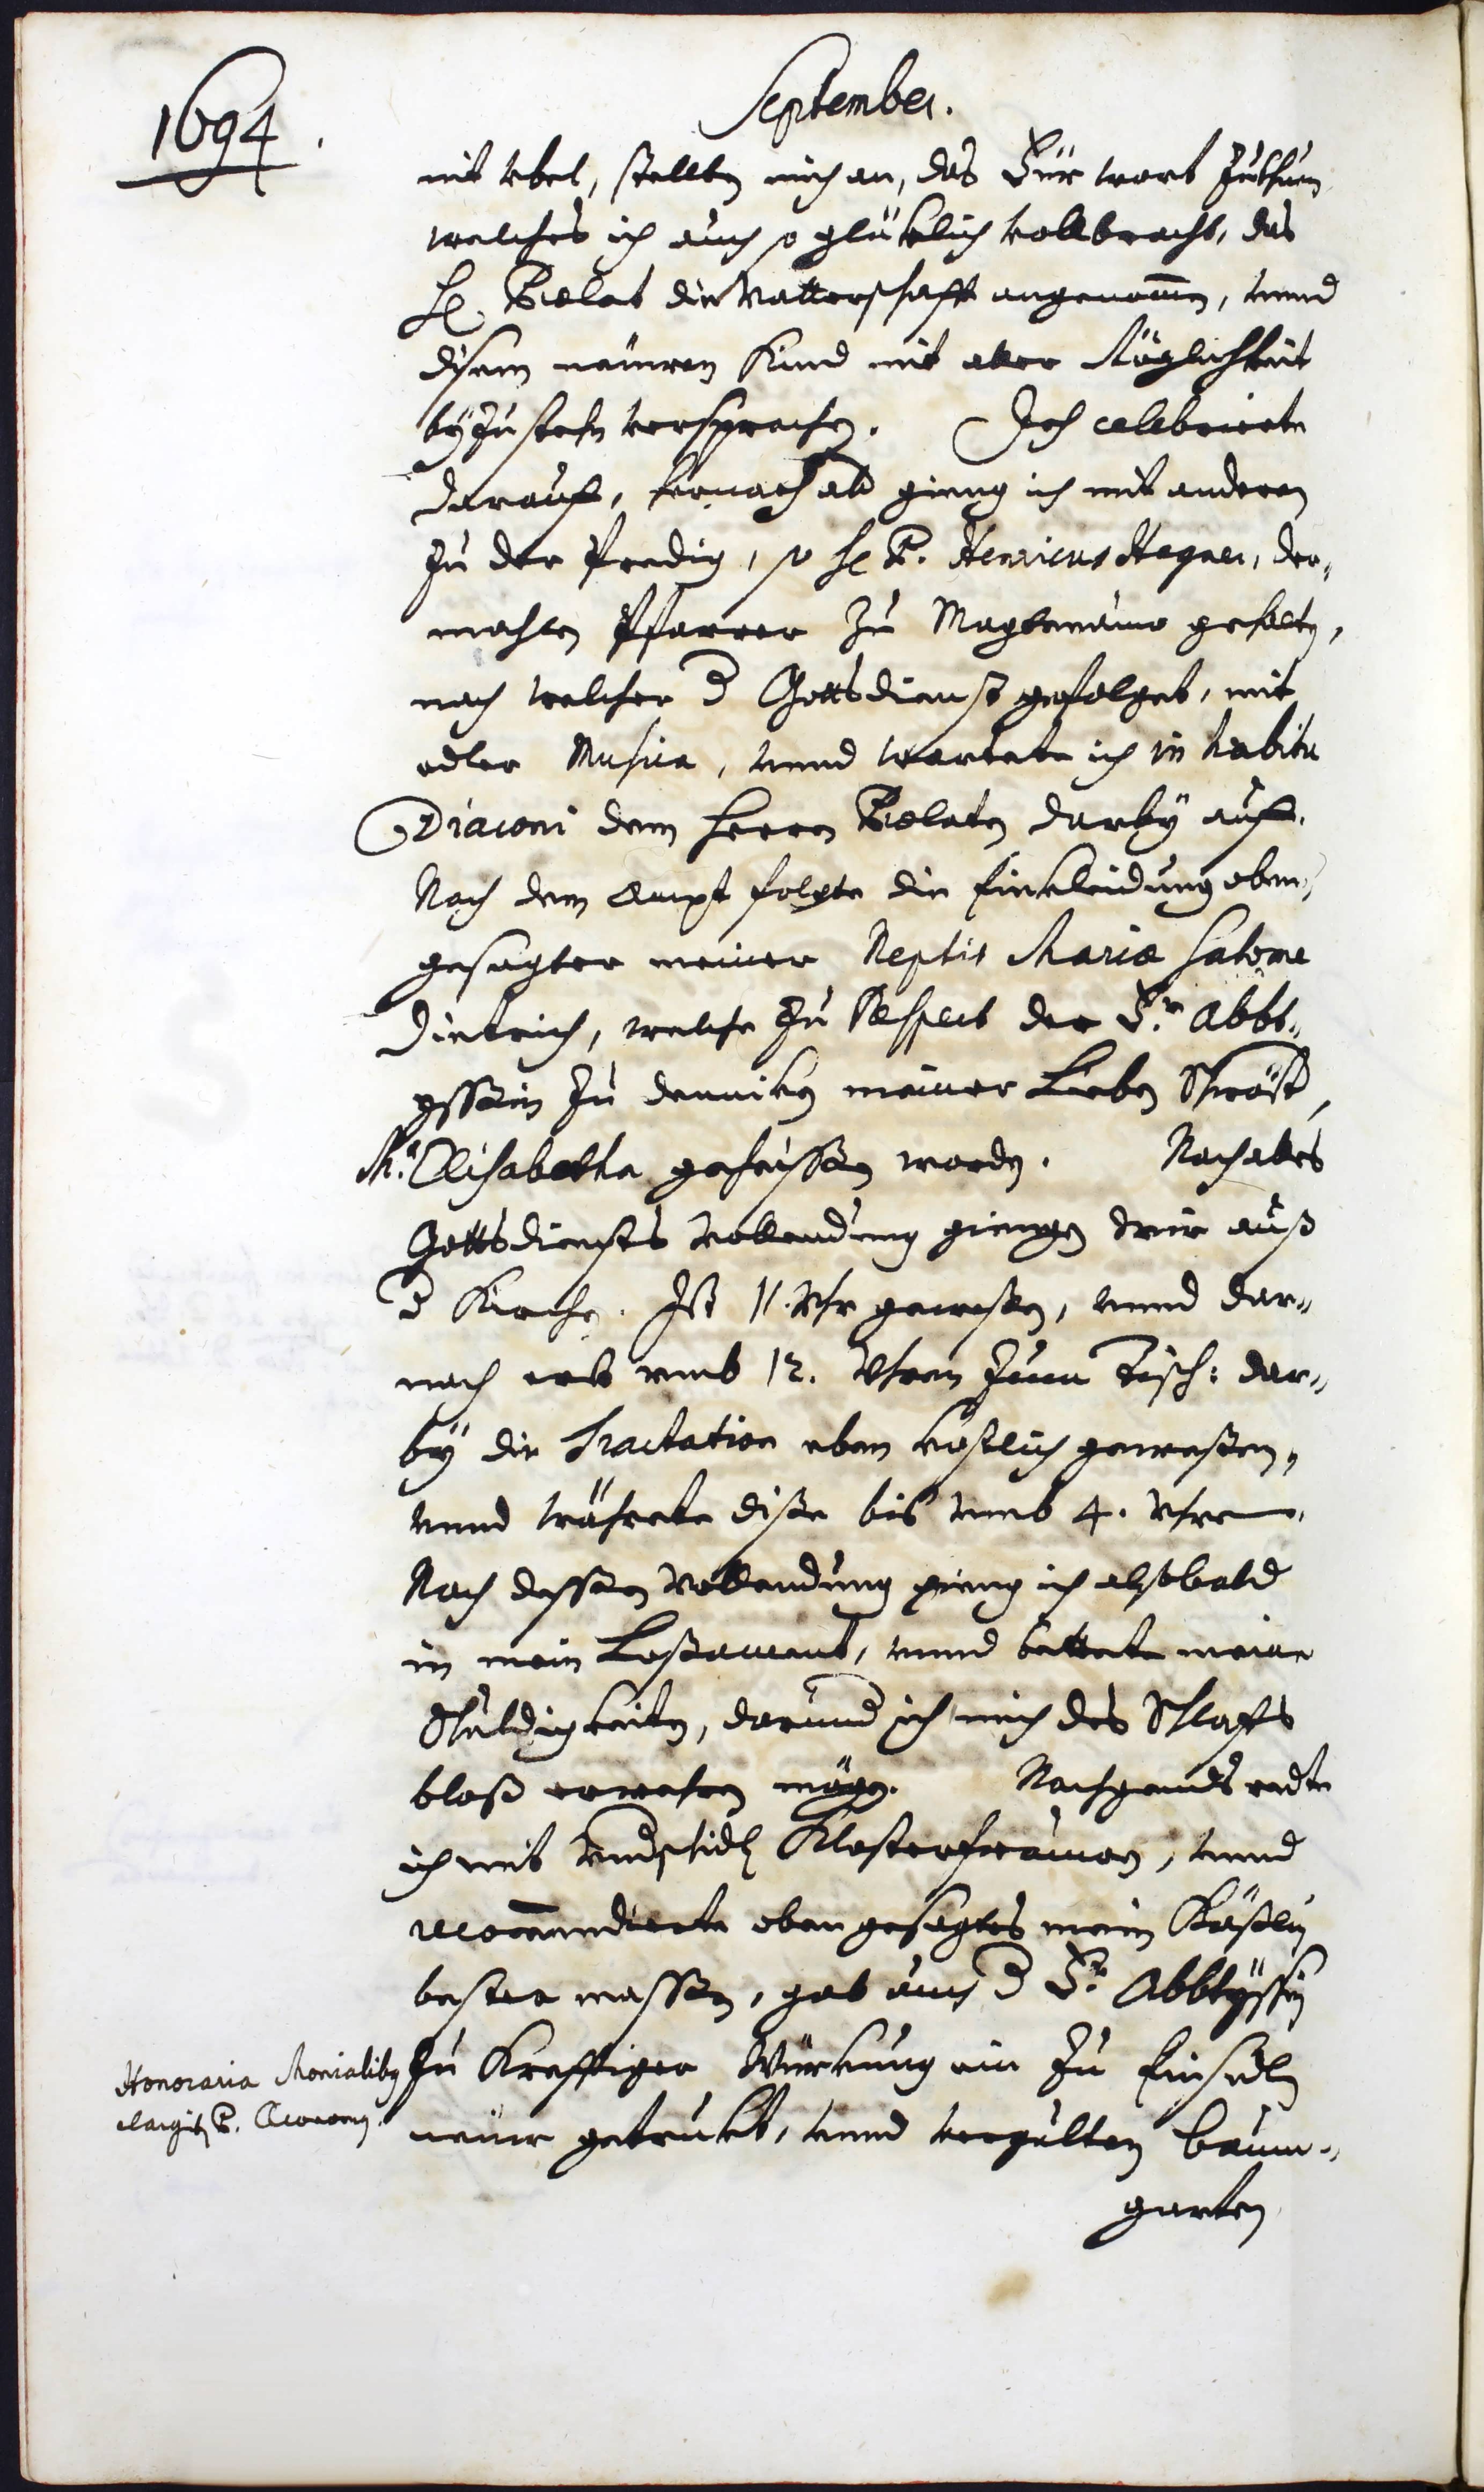 1694.
September.
nit übel, stellten mich an, das Fürwort Zuthuen
welches ich auch so glüklich vollbracht, das
Hl. Prælat die Vatterschafft angenom̄en, vnnd
disem neüwen Kind mit aller Möglichkeit
byZustehn versprochen. Ich celebrierte
darauf, hernach ab gieng ich mit anderen
Zu der Predig, so Hl. P. Henricus Hegner, der„
mahlen Pfarrer Zu Magtenauw gehalten,
nach welcher d Gottsdienst gefolget, mit
edler Musica, vnnd wartete ich in habitu
Diaconi dem Herren Prælaten darby auf.
Nach dem Ampt folgte die Einkleidung oben„
gesagter meiner Neptis Maria Salome
Dietrich, welche Zu Respect der Fr. Abbt„
yssin Zu Denniken meiner Lieben Schwöst
M.a Elisabetha geheissen worden. Nach alles
Gottsdiensts Vollendung giengen wir auß
d Kirchen. Ist 11. Vhr gewesen, vnnd dar„
nach erst vmb 12. Vhren Zum Tisch: dar„
by die Tractation eben köstlich gewesen,
vnnd währete dise bis vmb 4. Vhren.
Nach dessen Vollendung gieng ich alsobald
in mein Losament, vnnd bettete meine
Schuldigkeiten, darund ich mich des Schlafs
bloß erwehren mögen. Nachgends redte
ich mit vndschidl Klosterfrauwen, vnnd
recom̄endierte oben gesagtes mein Bäßlin
bester massen, gab auch d Fr. Abbtyssin
Zu Krefftiger Würkung ein Zu Einsidlen
neüw getrukt, vnnd vergülten Baum„
garten
Honoraria Monialibus
elargit P. Oeconom.